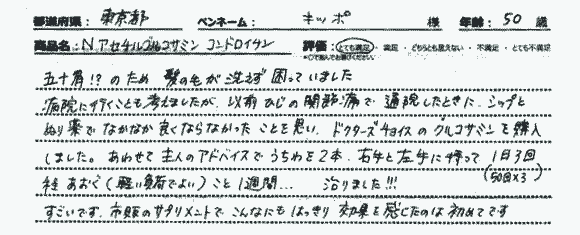 都道府県： 東京都 ペンネーム： キッポ 様 年齢： 50 歳
商品名： N.アセチルグルコサミン コンドロイチン 評価： とても満足 ・ 満足 ・ どちらとも思えない ・ 不満足 ・ とても不満足
五十肩!? のため 髪の毛が 洗えず 困っていました
病院に行くことも考えましたが、以前 ひじの関節痛で 通院したときに、シップと
ぬり薬で なかなか良くならなかった ことを思い、ドクターズチョイスのグルコサミンを購入
しました。あわせて 主人のアドバイスで うちわを2本、右手と左手に持って 1日3回
(50回×3)
軽くあおぐ (軽い負荷でよい) こと 1週間… 治りました!!!
すごいです。市販のサプリメントで こんなにも はっきり 効果を感じたのは 初めてです